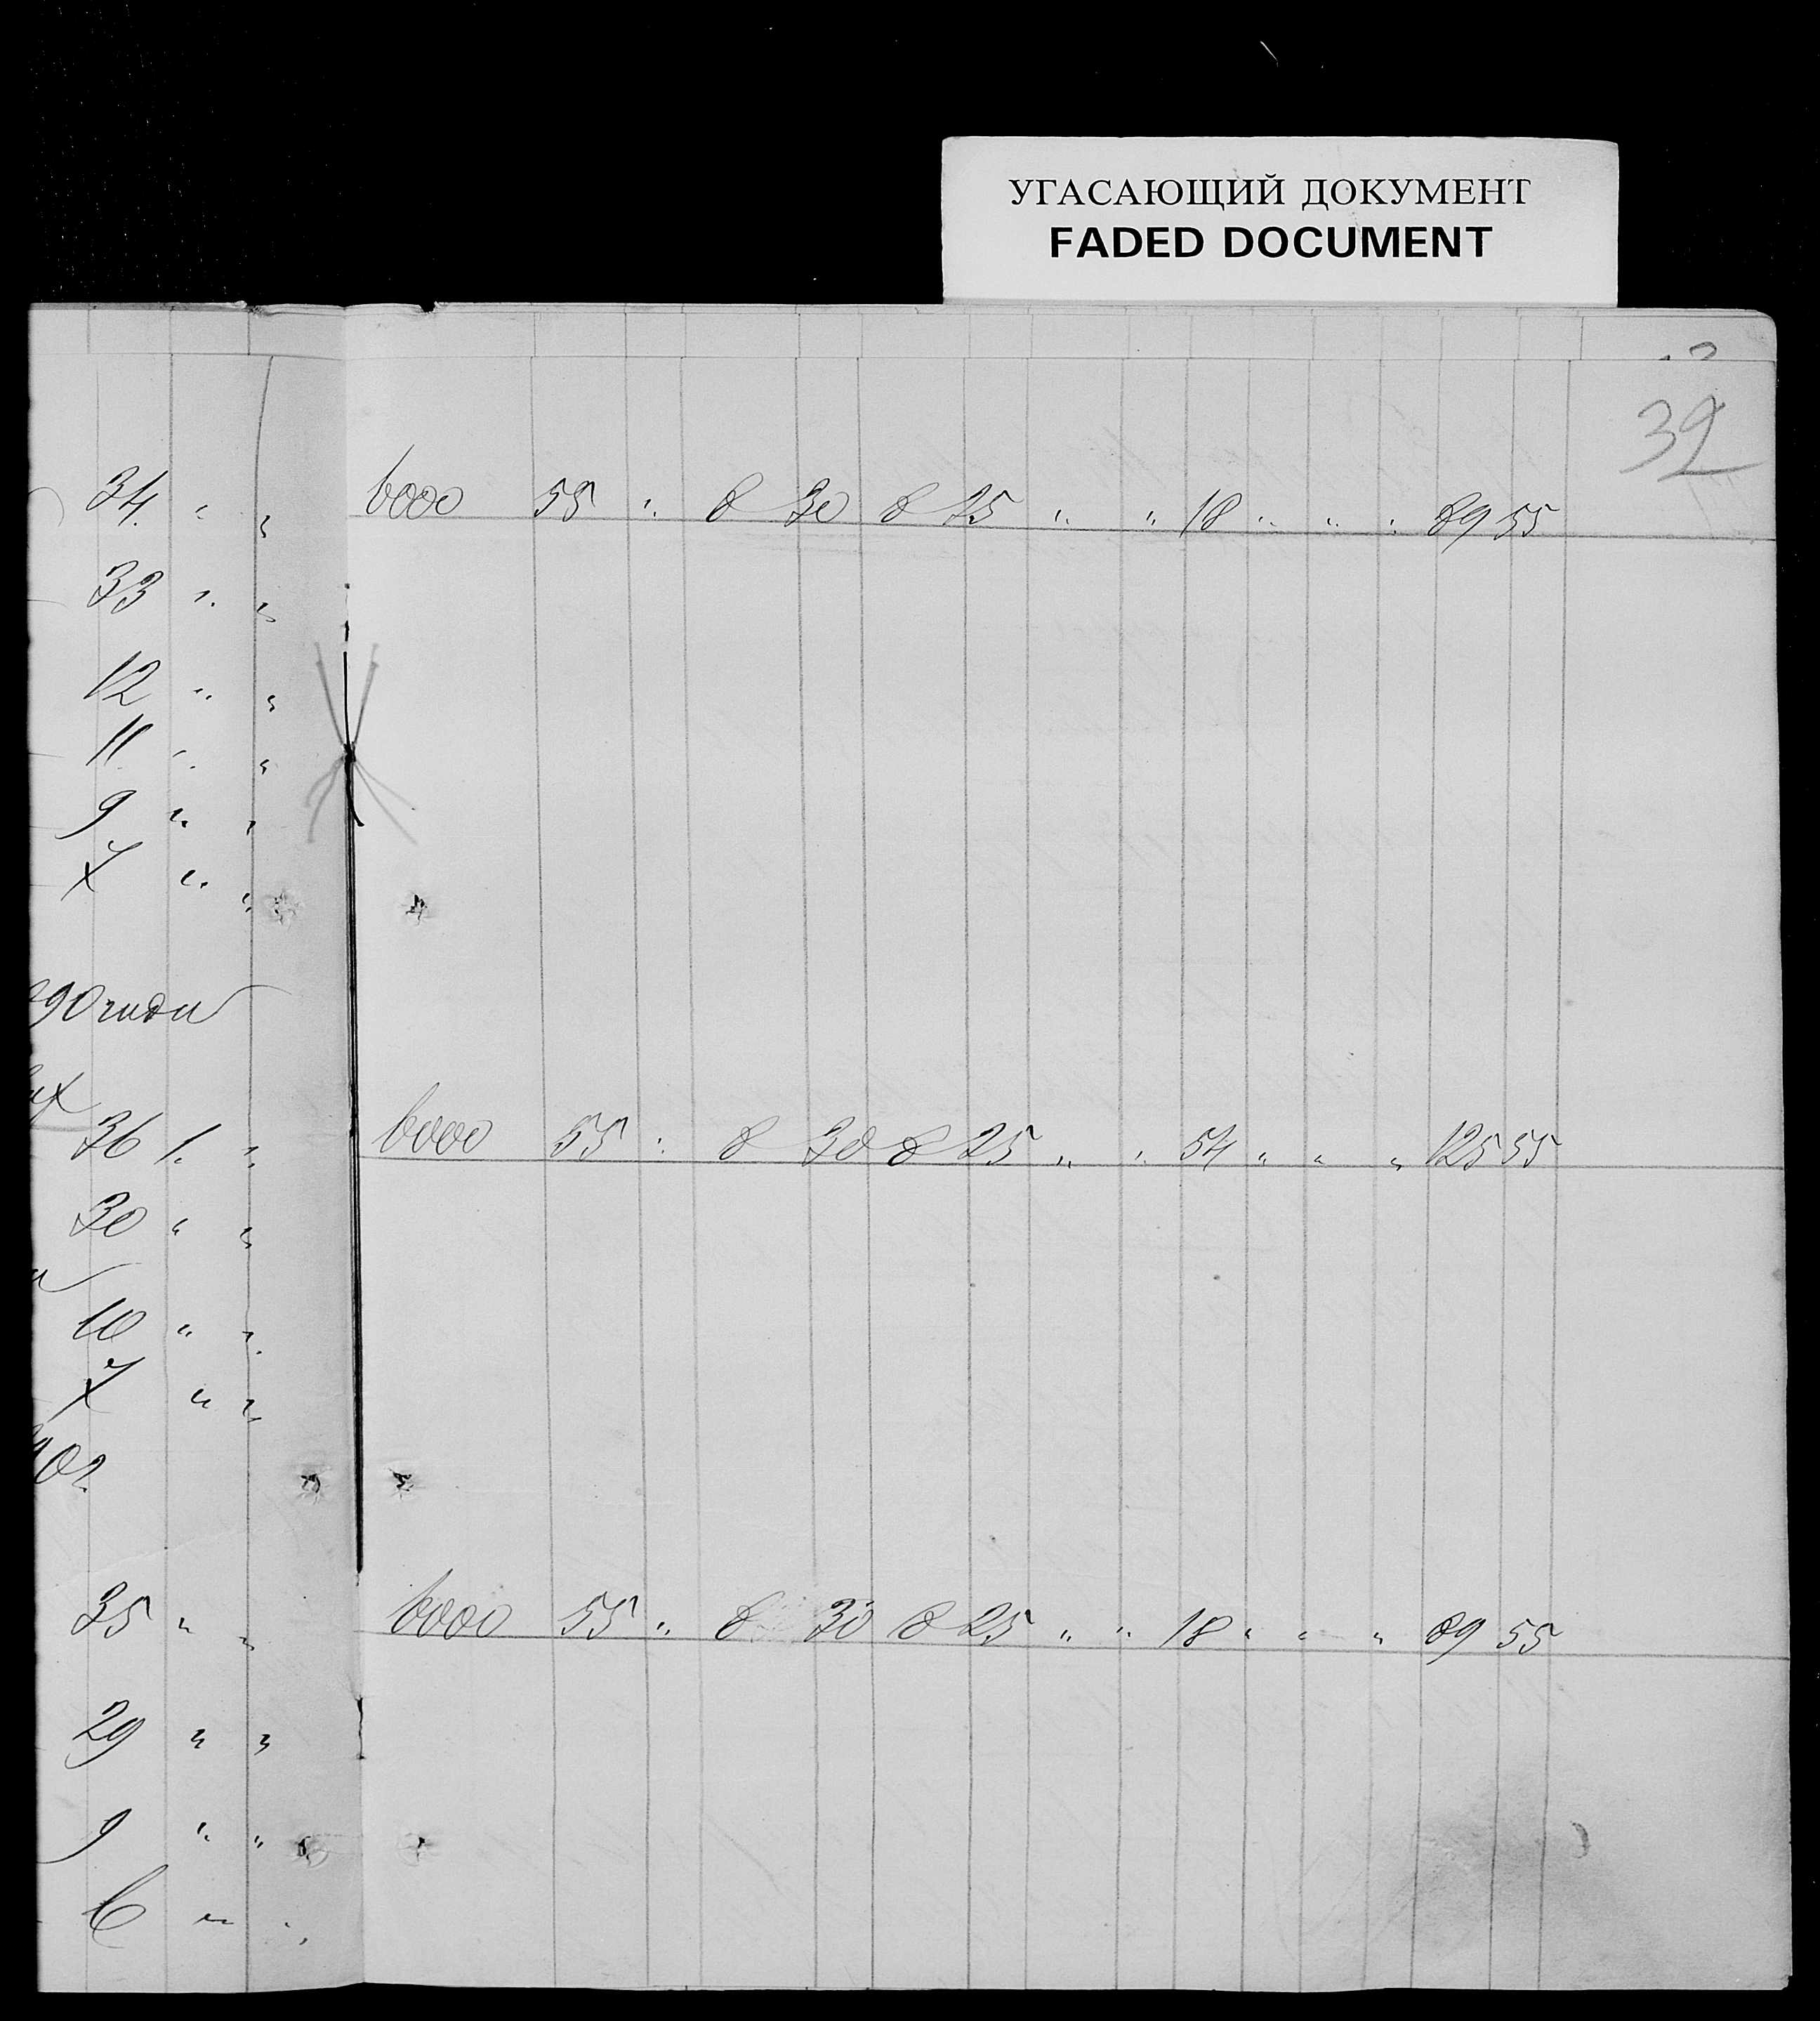 УГАСАЮЩИЙ ДОКУМЕНТ
FADED DOCUMENT
32
34. " " 6000 55 " 8 30 8 25 " " 18 " " " 89 55
33 " "
12 " "
11 " "
9 " "
7 " "
90 года
их
36 1. " 6000 55 " 8 30 8 25 " " 54 " " " 125 55
30 " "
10 " "
7 " "
90 г.
35 " " 6000 55 " 8 30 8 25 " " 18 " " " 89 55
29 " "
9 " "
6 " "